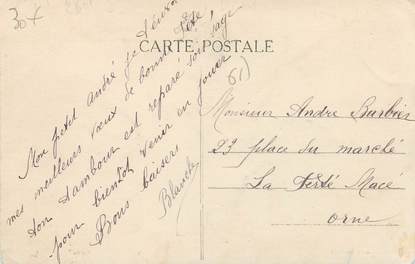 30x
CARTE POSTALE
61)
Mon petit André je t'envoie
mes meilleurs vœux de bonne fête
ton tambour est réparé soit sage
pour bientôt venir en jouer
Bons baisers
Blanche
Monsieur André Barbier
23 place du marché
La Ferté Macé
Orne